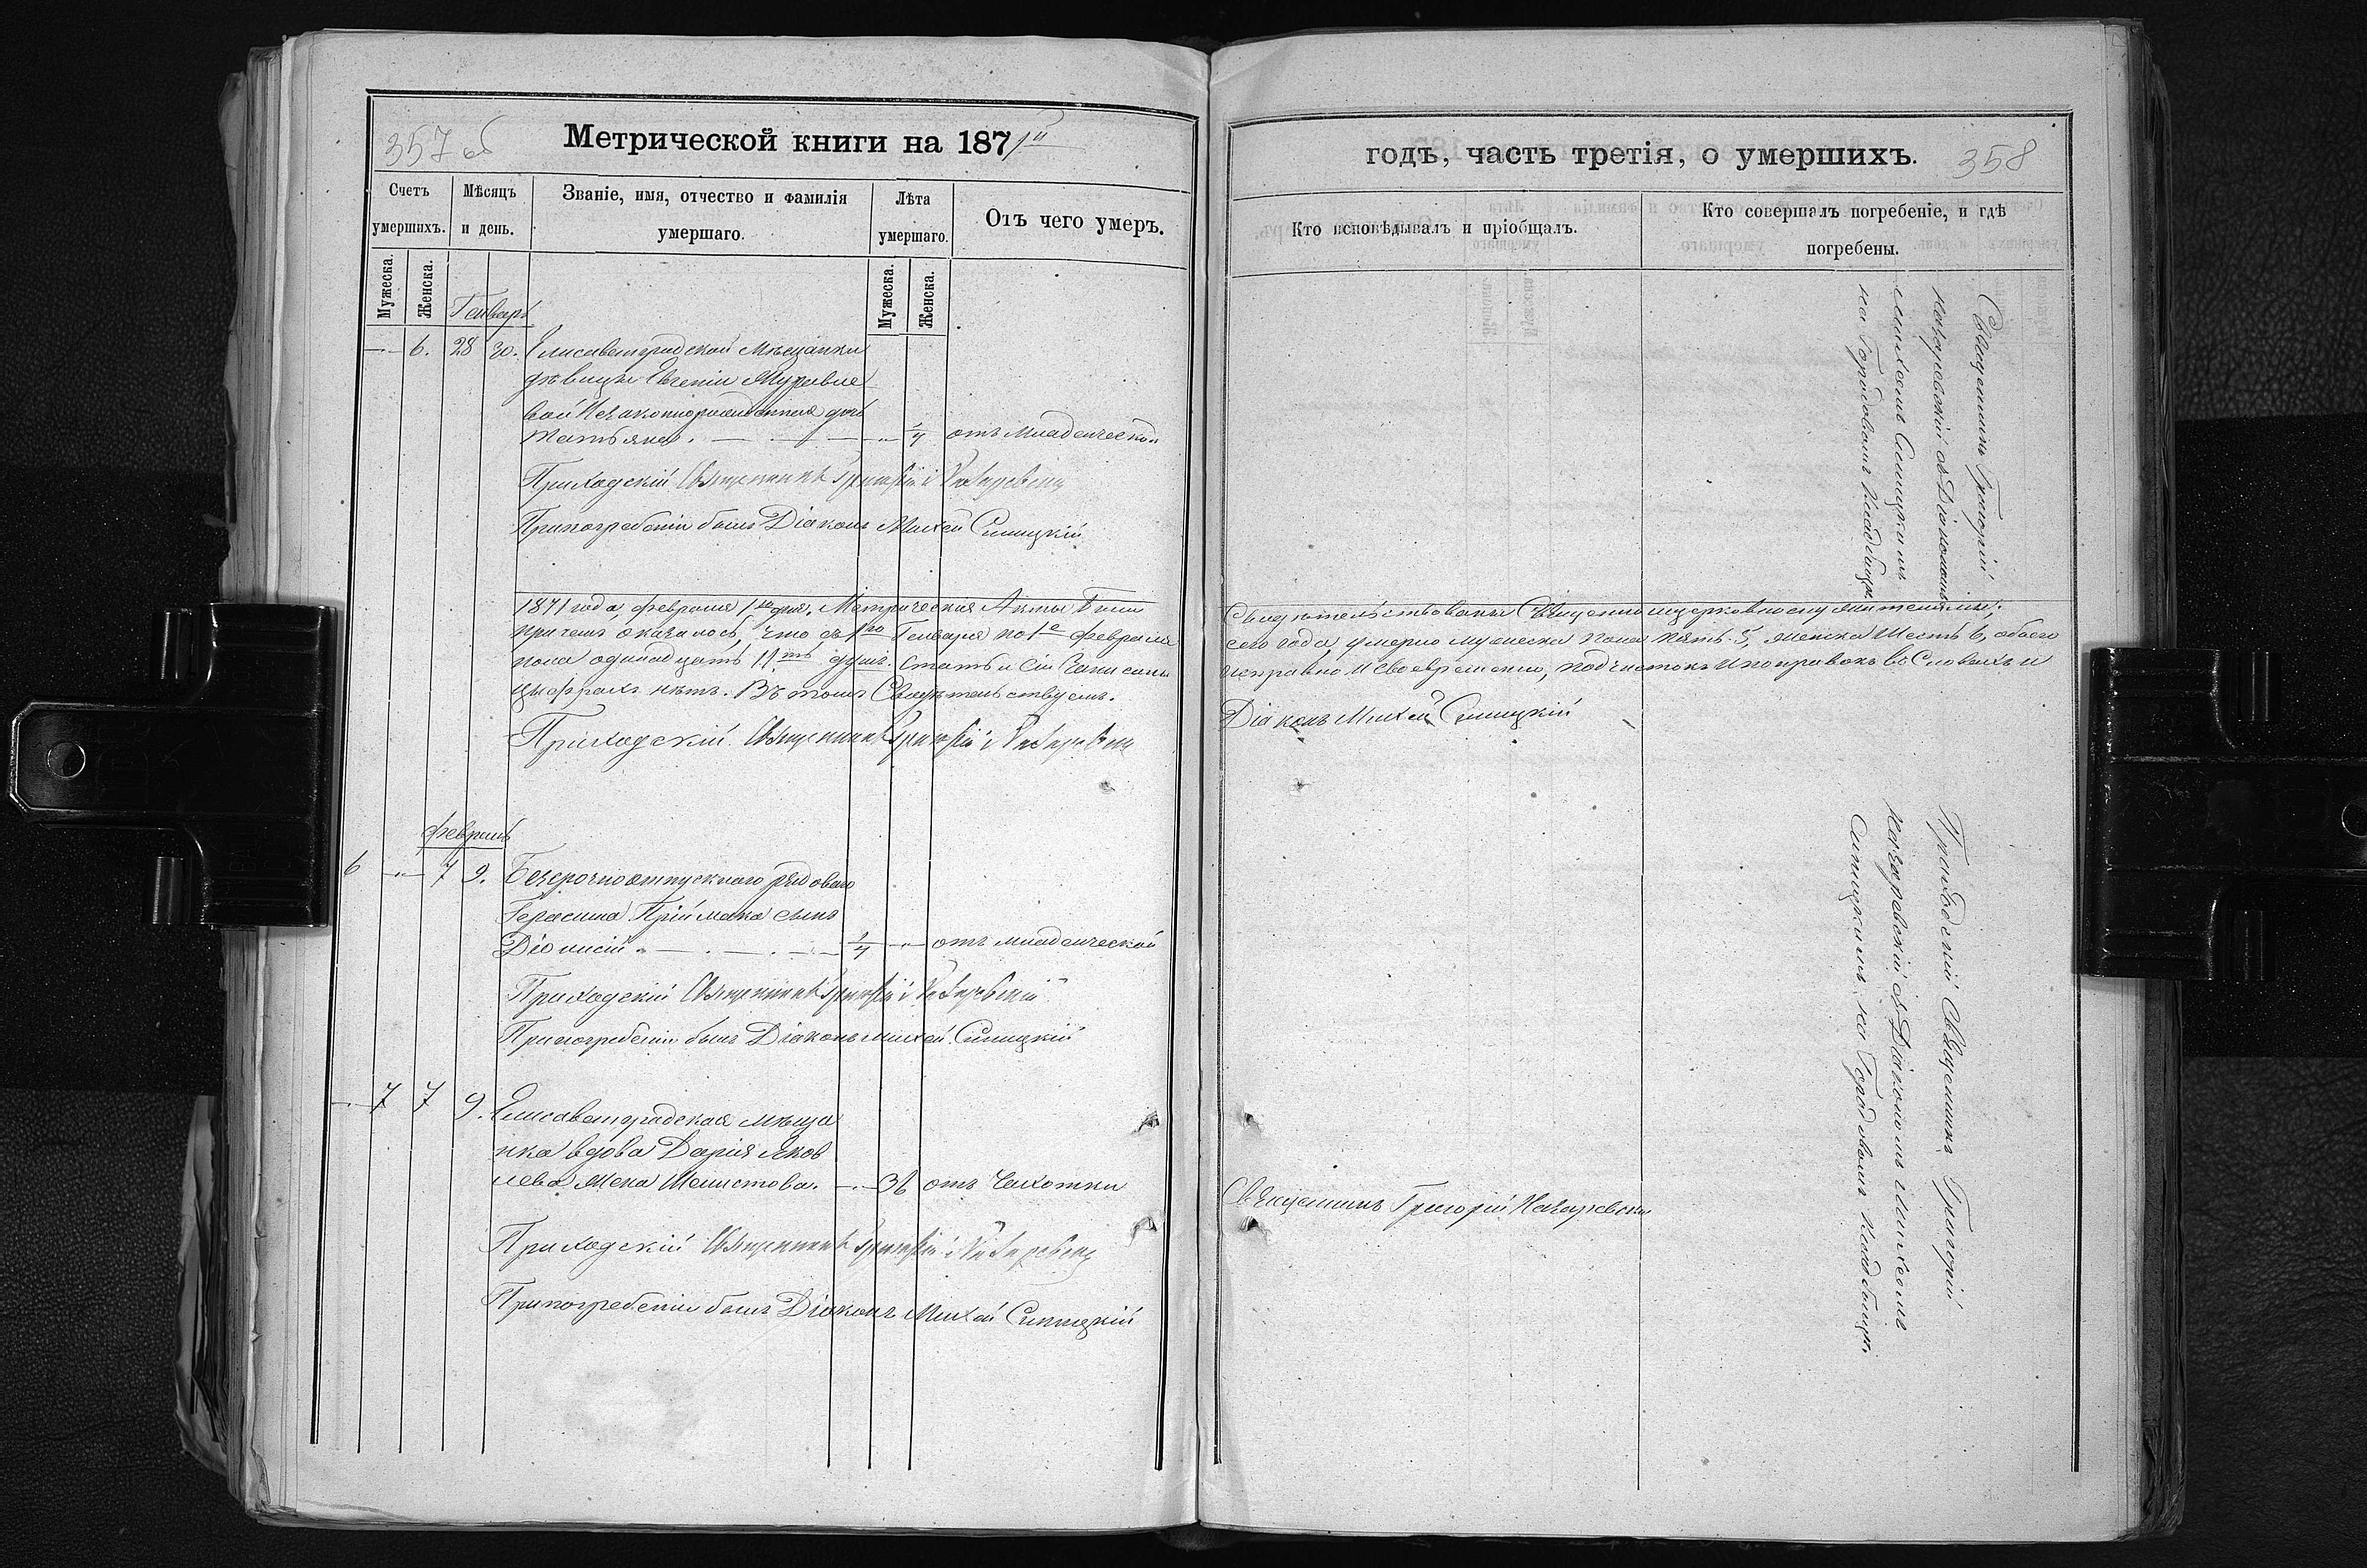 357 об
Метрической книги на 1871й
Счетъ умершихъ.
Мѣсяцъ и день.
Званіе, имя, отчество и фамилія умершаго.
Лѣта умершаго.
Отъ чего умеръ.
Мужеска.
Женска.
Мужеска.
Женска.
Генварь
6. 28 30. Елисаветградской мѣщанки
дѣвицы Евгеніи Муравле
вой незаконнорожденная дочь
Татьяна. 1/4 отъ младенческой
Приходскій Священникъ Григорій Назаревскій
При погребеніи былъ Діаконъ Михей Синицкій
1871 года, февраля 1го дня. Метрическія Акты были
причемъ оказалось, что съ 1го Генваря по 1е февраля
пола одинадцать 11ть душъ. Статьи сіи записаны
цифрахъ нѣтъ. Въ томъ Свидѣтельствуемъ.
Приходскій Священникъ Григорій Назаревскій
февраль
6 7 9. Безсрочноотпускного рядового
Герасима Пріймака сынъ
Діонисій 1/4 отъ младенческой
Приходскій Священникъ Григорій Назаревскій
При погребеніи былъ Діаконъ Михей Синицкій
7 7 9. Елисаветградская мѣща
нка вдова Дарія Яков
лева жена 36 отъ чахотки
Приходскій Священникъ Григорій Назаревскій
При погребеніи былъ Діаконъ Михей Синицкій
годъ, часть третія, о умершихъ.
358
Кто исповѣдывалъ и пріобщалъ.
Кто совершалъ погребеніе, и гдѣ погребены.
Священникъ Григорій
Назаревскій съ Діакономъ
Михеемъ Синицкимъ
на Городовомъ кладбищѣ.
Свидѣтельствованы Священноцерковнослужителями;
сего года, умерло мужеска пола пять 5, женска шесть 6, обоего
исправно и своевременно, подчистокъ и поправокъ въ словахъ и
Діаконъ Михей Синицкій
Приходскій Священникъ Григорій
Назаревскій съ Діакономъ Михеемъ
Синицкимъ на Городовомъ кладбищѣ.
Священникъ Григорій Назаревскій